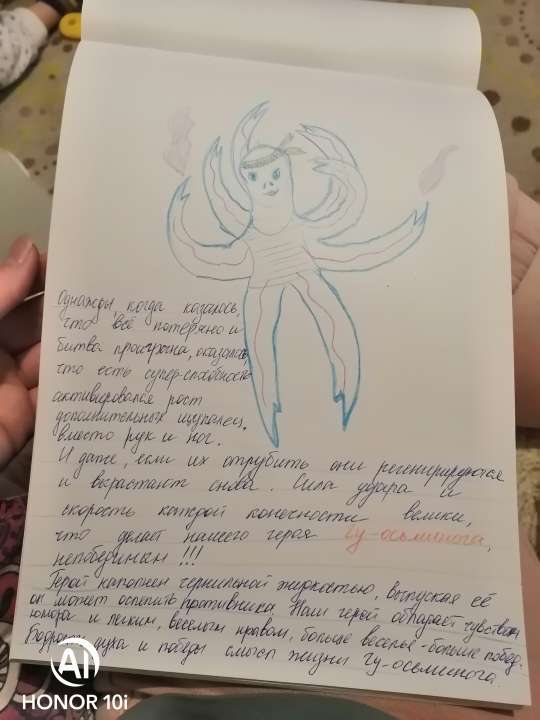 Однажды когда казалось,
что всё потеряно и
битва проиграна, оказалось,
что есть супер-способность
активировался рост
дополнительных щупалец,
вместо рук и ног.
И даже, если их отрубить они регенерируются
и вырастают снова. Сила удара и
скорость каждой конечности велики,
что делает нашего героя гу-осьминога,
непобедимым!!!
Герой наполнен чернильной жидкостью, выпуская её
он может ослепить противника. Наш герой обладает чувством
юмора и легким, веселым нравом, больше веселья-больше побед.
Бодрость духа и победы смысл жизни гу-осьминога.
AI
HONOR 10i